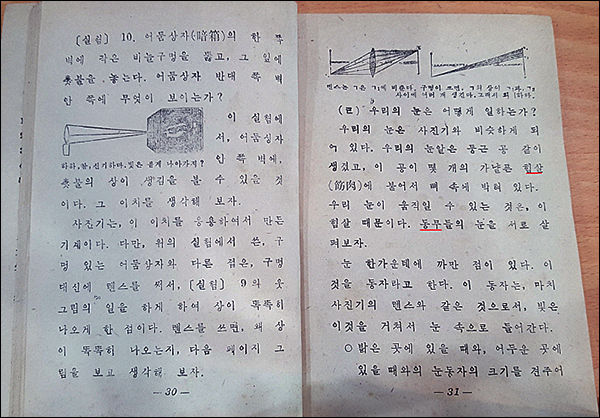 〔실험〕 10. 어둠상자(暗箱)의 한 쪽
벽에 작은 바늘구멍을 뚫고, 그 앞에
촛불을 놓는다. 어둠상자 반대 쪽 벽
안 쪽에 무엇이 보이는가?
이 실험에
서, 어둠상자
안 쪽 벽에,
하하, 참, 신기하다. 빛은 곧게 나아가지?
촛불의 상이 생김을 볼 수 있을 것
이다. 그 이치를 생각해 보자.
사진기는, 이 이치를 응용하여서 만든
기계이다. 다만, 위의 실험에서 쓴, 구
멍 있는 어둠상자와 다른 점은, 구멍
대신에 렌스를 써서, 〔실험〕 9의 웃
그림의 일을 하게 하여 상이 똑똑히
나오게 한 점이다. 렌스를 쓰면, 왜 상
이 똑똑히 나오는지, 다음 페이지 그
림을 보고 생각해 보자.
— 30 —
렌스는 ㄱ은 ㄱ에 비춘다. 구멍이 크면, ㄱ의 상이 ㄱ과
사이에 여러 개 생긴다. 그래서 흐
(ㄹ) 우리의 눈은 어떻게 일하는가?
우리의 눈은 사진기와 비슷하게 되
어 있다. 우리의 눈알은 둥근 공 같이
생겼고, 이 공이 몇 개의 가냘픈 힘살
(筋肉)에 붙어서 뼈 속에 박혀 있다.
우리 눈이 움직일 수 있는 것은, 이
힘살 때문이다. 동무들의 눈을 서로 살
펴보자.
눈 한가운데에 까만 점이 있다. 이
것을 동자라고 한다. 이 동자는, 마치
사진기의 렌스와 같은 것으로서, 빛은
이것을 거쳐서 눈 속으로 들어간다.
○ 밝은 곳에 있을 때와, 어두운 곳에
있을 때와의 눈동자의 크기를 견주어
— 31 —